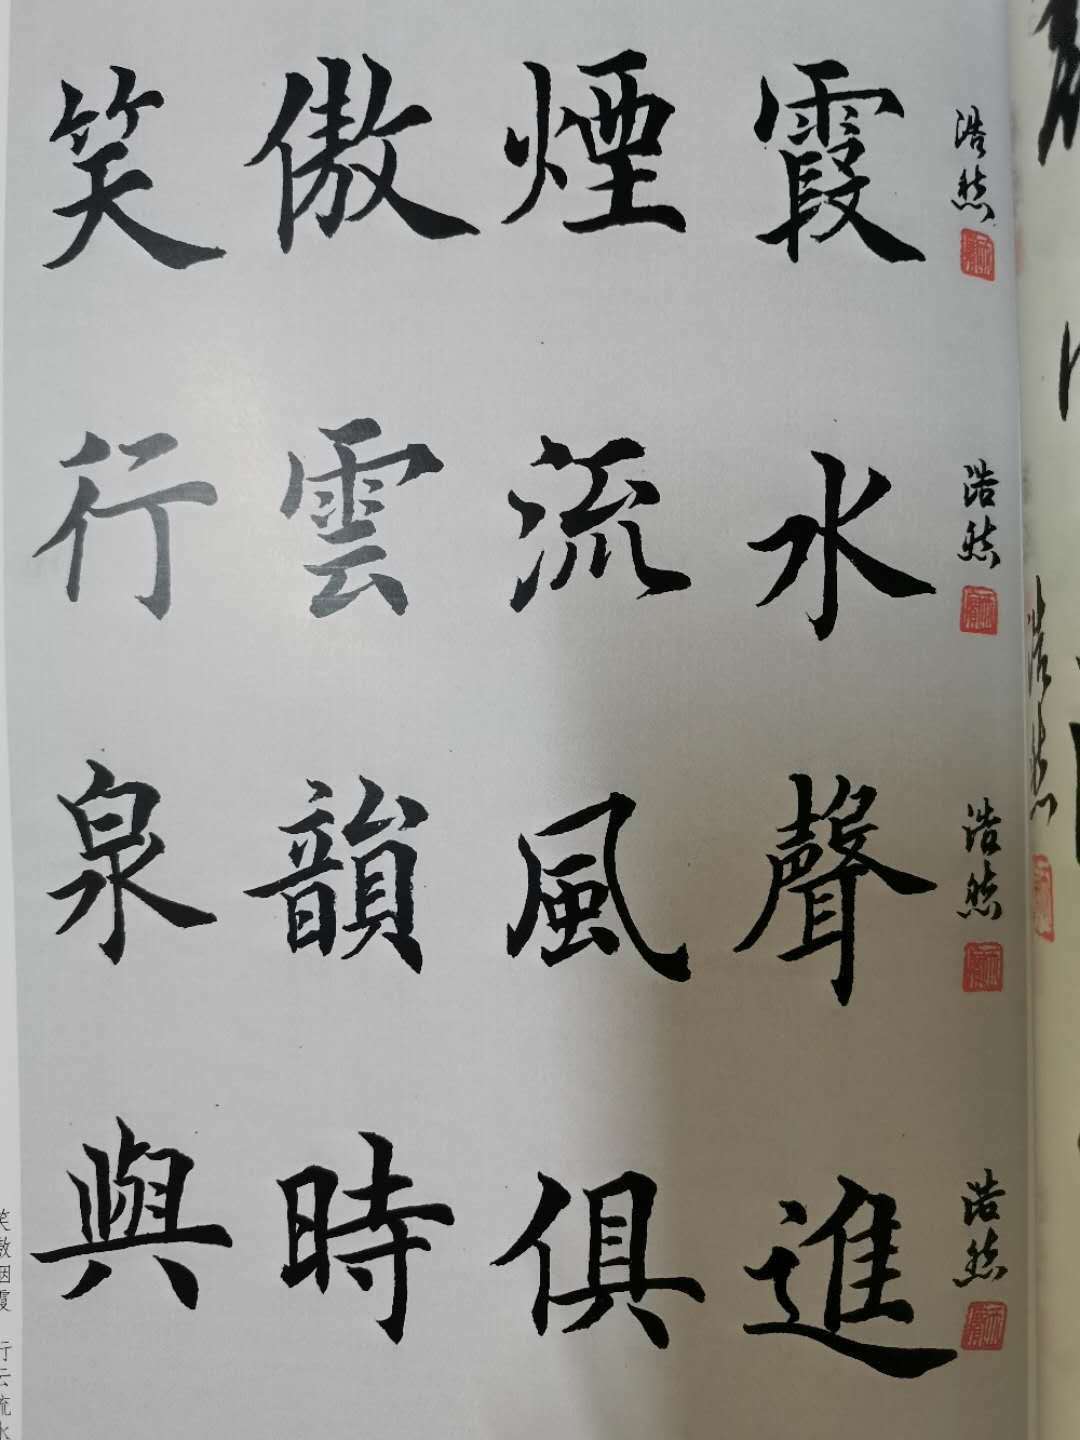 笑傲煙霞
浩然
行雲流水
浩然
泉韻風聲
浩然
與時俱進
浩然
浩然
笑傲烟霞 行云流水